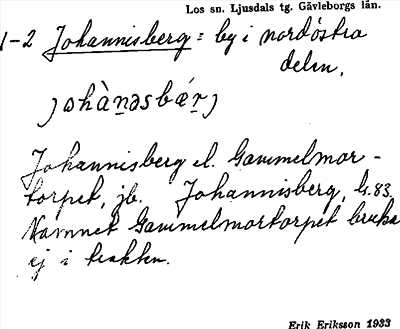 Los sn. Ljusdals tg. Gävleborgs län.
1-2 Johannisberg = by i nordöstra
delen.
johànəsbæ̀rj
Johannisberg el. Gammelmor-
torpet, jb. Johannisberg, G. 83.
Namnet Gammelmortorpet brukas
ej i trakten.
Erik Eriksson 1933